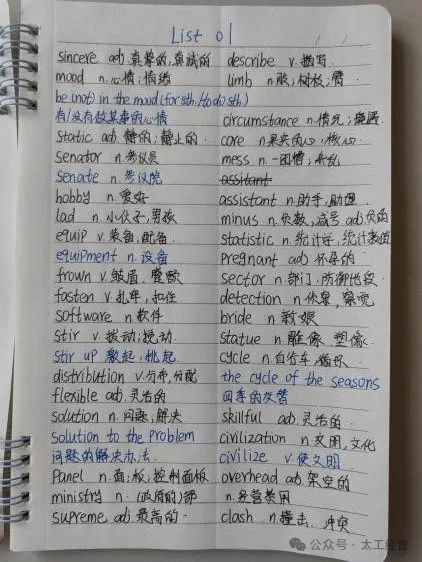 List 01
sincere adj. 真挚的,真诚的
mood n. 心情;情绪
be (not) in the mood (for sth./to do sth.)
有/没有做某事的心情
static adj. 静的;静止的.
senator n. 参议员
senate n. 参议院
hobby n. 爱好
lad n. 小伙子,男孩
equip v. 装备,配备.
equipment n. 设备
frown v. 皱眉、蹙额
fasten v. 扎牢,扣住
software n. 软件
stir v. 拨动;搅动
stir up 激起,挑起
distribution v. 分布,分配
flexible adj. 灵活的
solution n. 问题;解决
solution to the problem
问题的解决办法.
Panel n. 面;板,控制面板
ministry n. (政府的)部
supreme adj. 最高的.
describe v. 描写
limb n. 肢;树枝;臂
circumstance n. 情况;境遇.
core n. 果实的心,核心
mess n. 一团糟;杂乱
assistant
assistant n. 助手,助理
minus n. 负数,减号 adj. 负的
statistic n. 统计学,统计数值
Pregnant adj. 怀孕的
sector n. 部门,防御地段
detection n. 侦察,察觉
bride n. 新娘
statue n. 雕像 塑像
cycle n. 自行车,循环
the cycle of the seasons
四季的交替
skillful adj. 灵活的.
civilization n. 文明,文化
civilize v. 使文明
overhead adj. 架空的
n. 经营费用
clash n. 撞击、冲突
公众号·太工经管